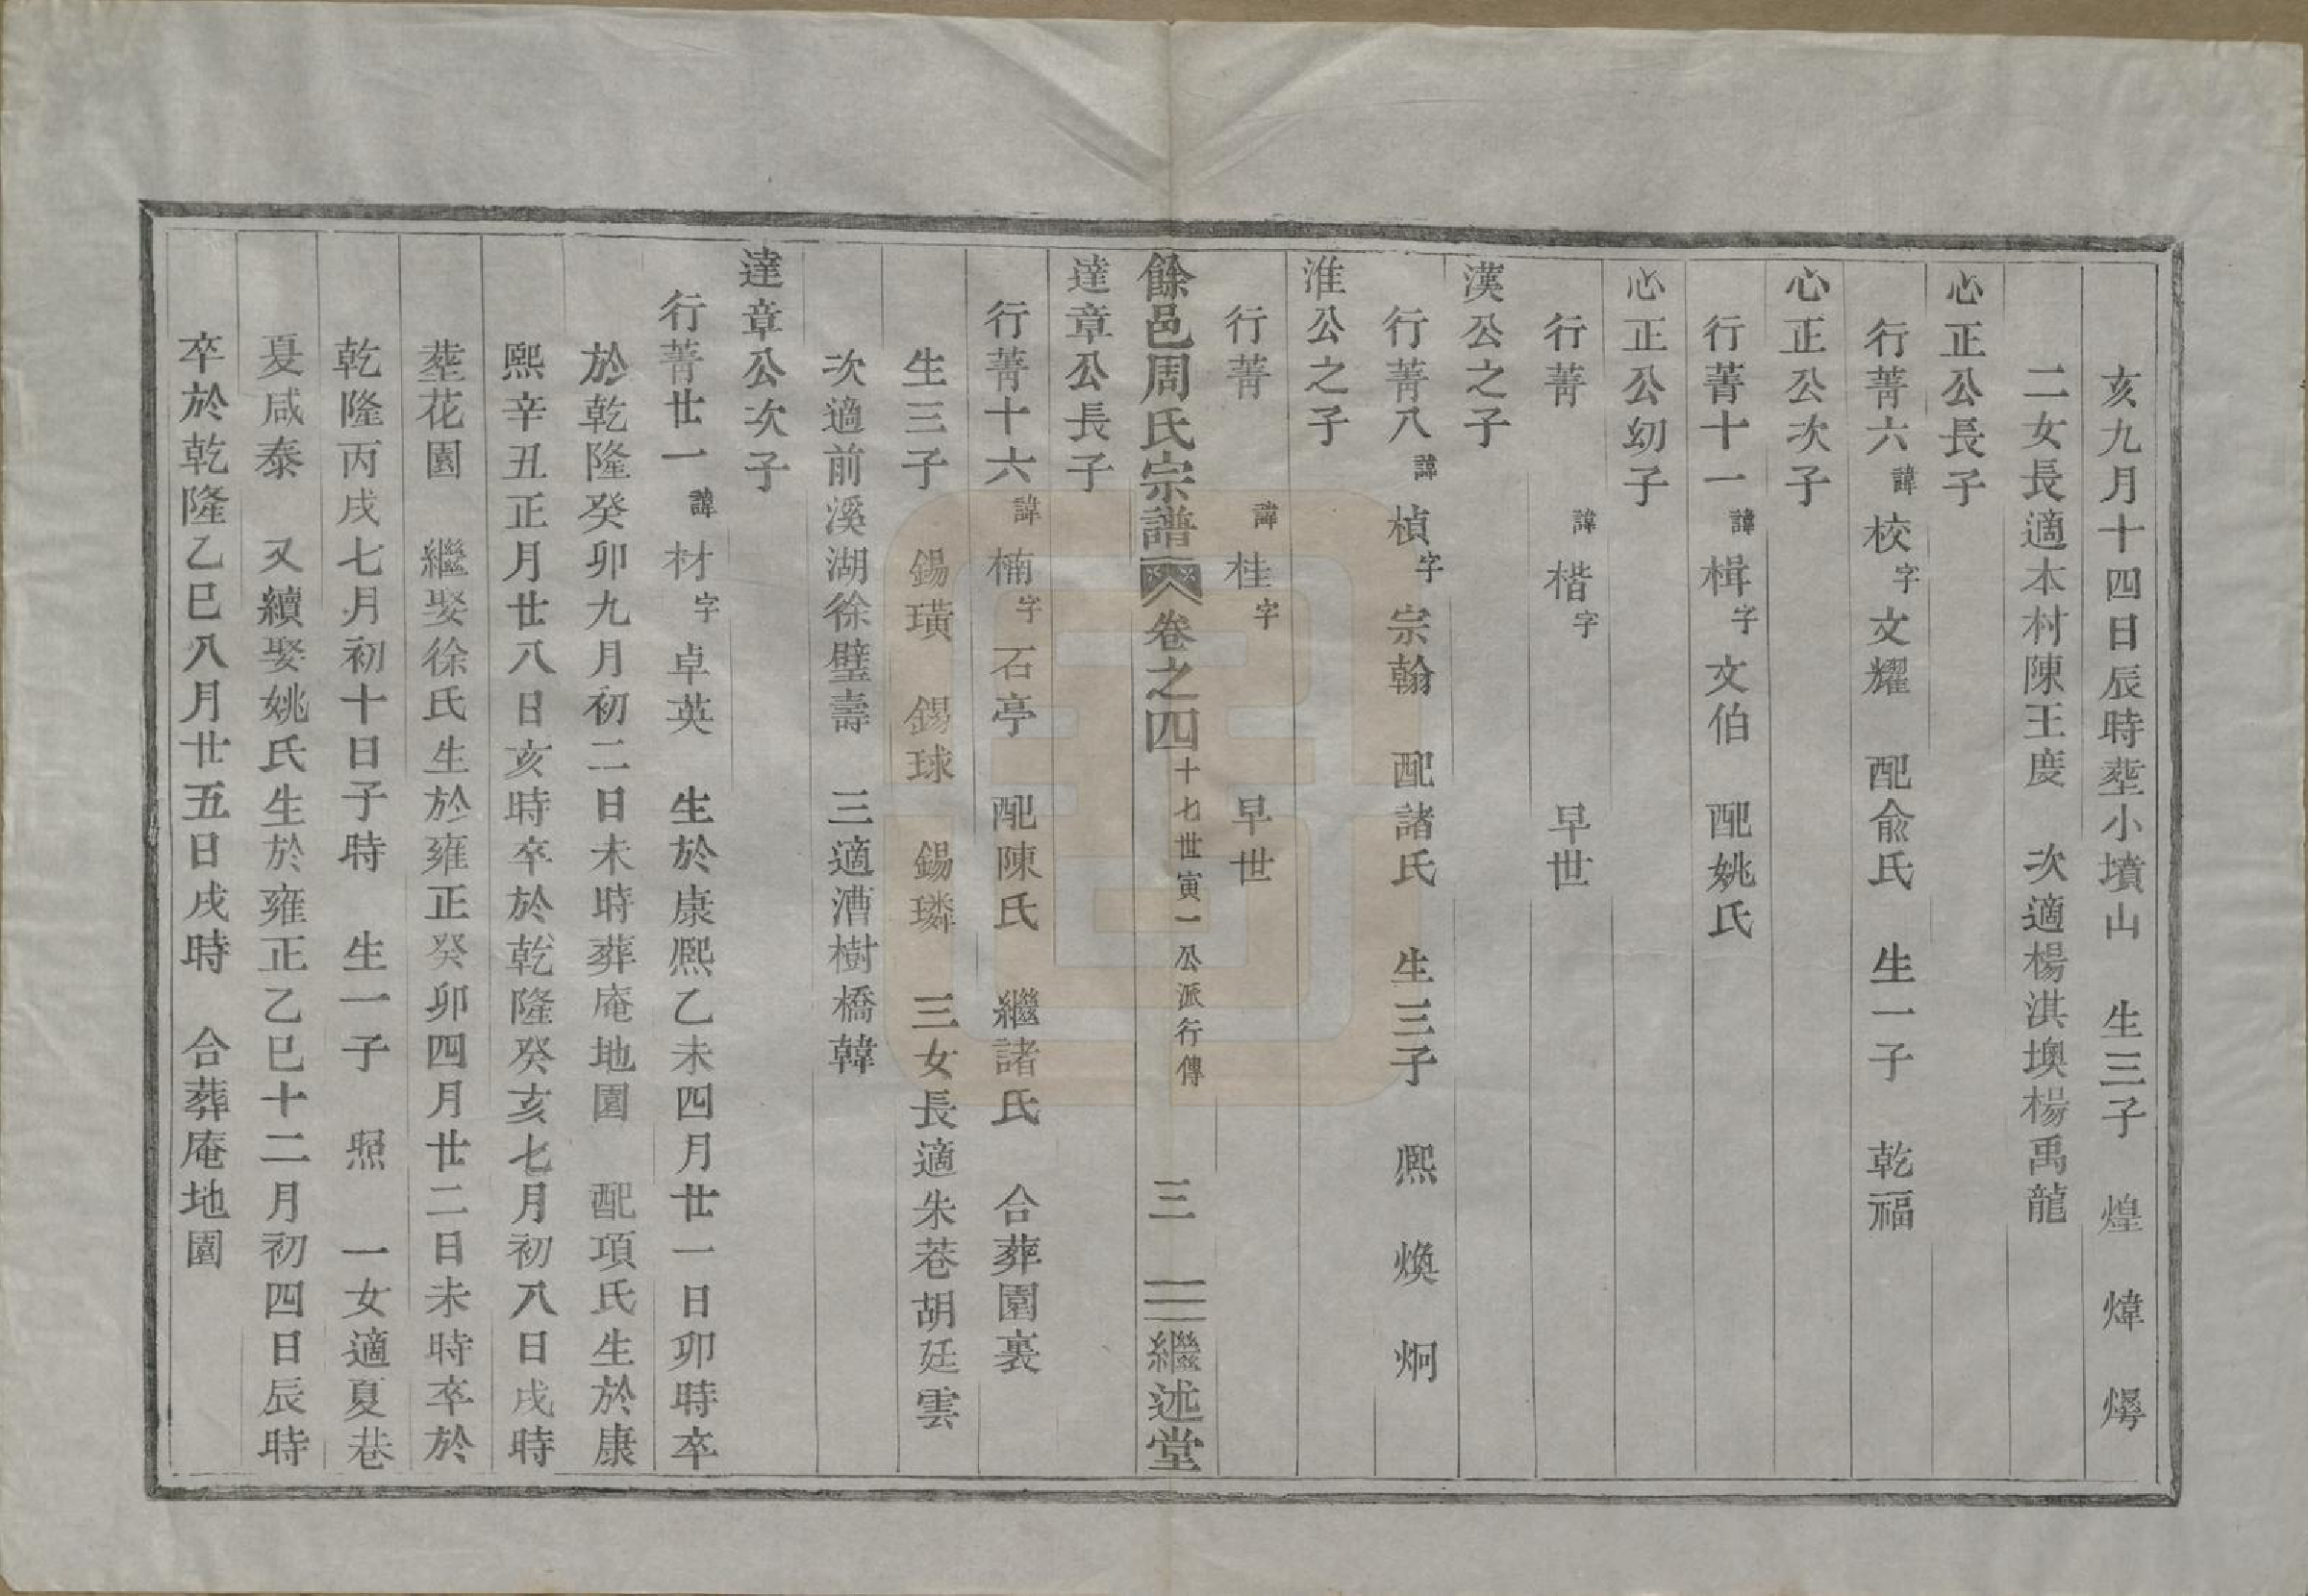 亥九月十四日辰時塟小墳山　生三子　煌　煒　燽
二女長適本村陳王度　次適楊淇墺楊禹龍
心正公長子
行菁六諱校字文耀　配俞氏　生一子　乾福
心正公次子
行菁十一諱楫字文伯　配姚氏
心正公幼子
行菁　諱楷字　早世
漢公之子
行菁八諱楨字宗翰　配諸氏　生三子　熙　煥　炯
淮公之子
行菁　諱桂字　早世
餘邑周氏宗譜　卷之四　十七世寅一公派行傳　三　繼述堂
達章公長子
行菁十六諱楠字石亭　配陳氏　繼諸氏　合葬園裏
生三子　錫璜　錫球　錫璘　三女長適朱巷胡廷雲
次適前溪湖徐璧壽　三適漕樹橋韓
達章公次子
行菁廿一諱材字卓英　生於康熙乙未四月廿一日卯時卒
於乾隆癸卯九月初二日未時葬庵地園　配項氏生於康
熙辛丑正月廿八日亥時卒於乾隆癸亥七月初八日戌時
塟花園　繼娶徐氏生於雍正癸卯四月廿二日未時卒於
乾隆丙戌七月初十日子時　生一子　照　一女適夏巷
夏咸泰　又續娶姚氏生於雍正乙巳十二月初四日辰時
卒於乾隆乙巳八月廿五日戌時　合葬庵地園